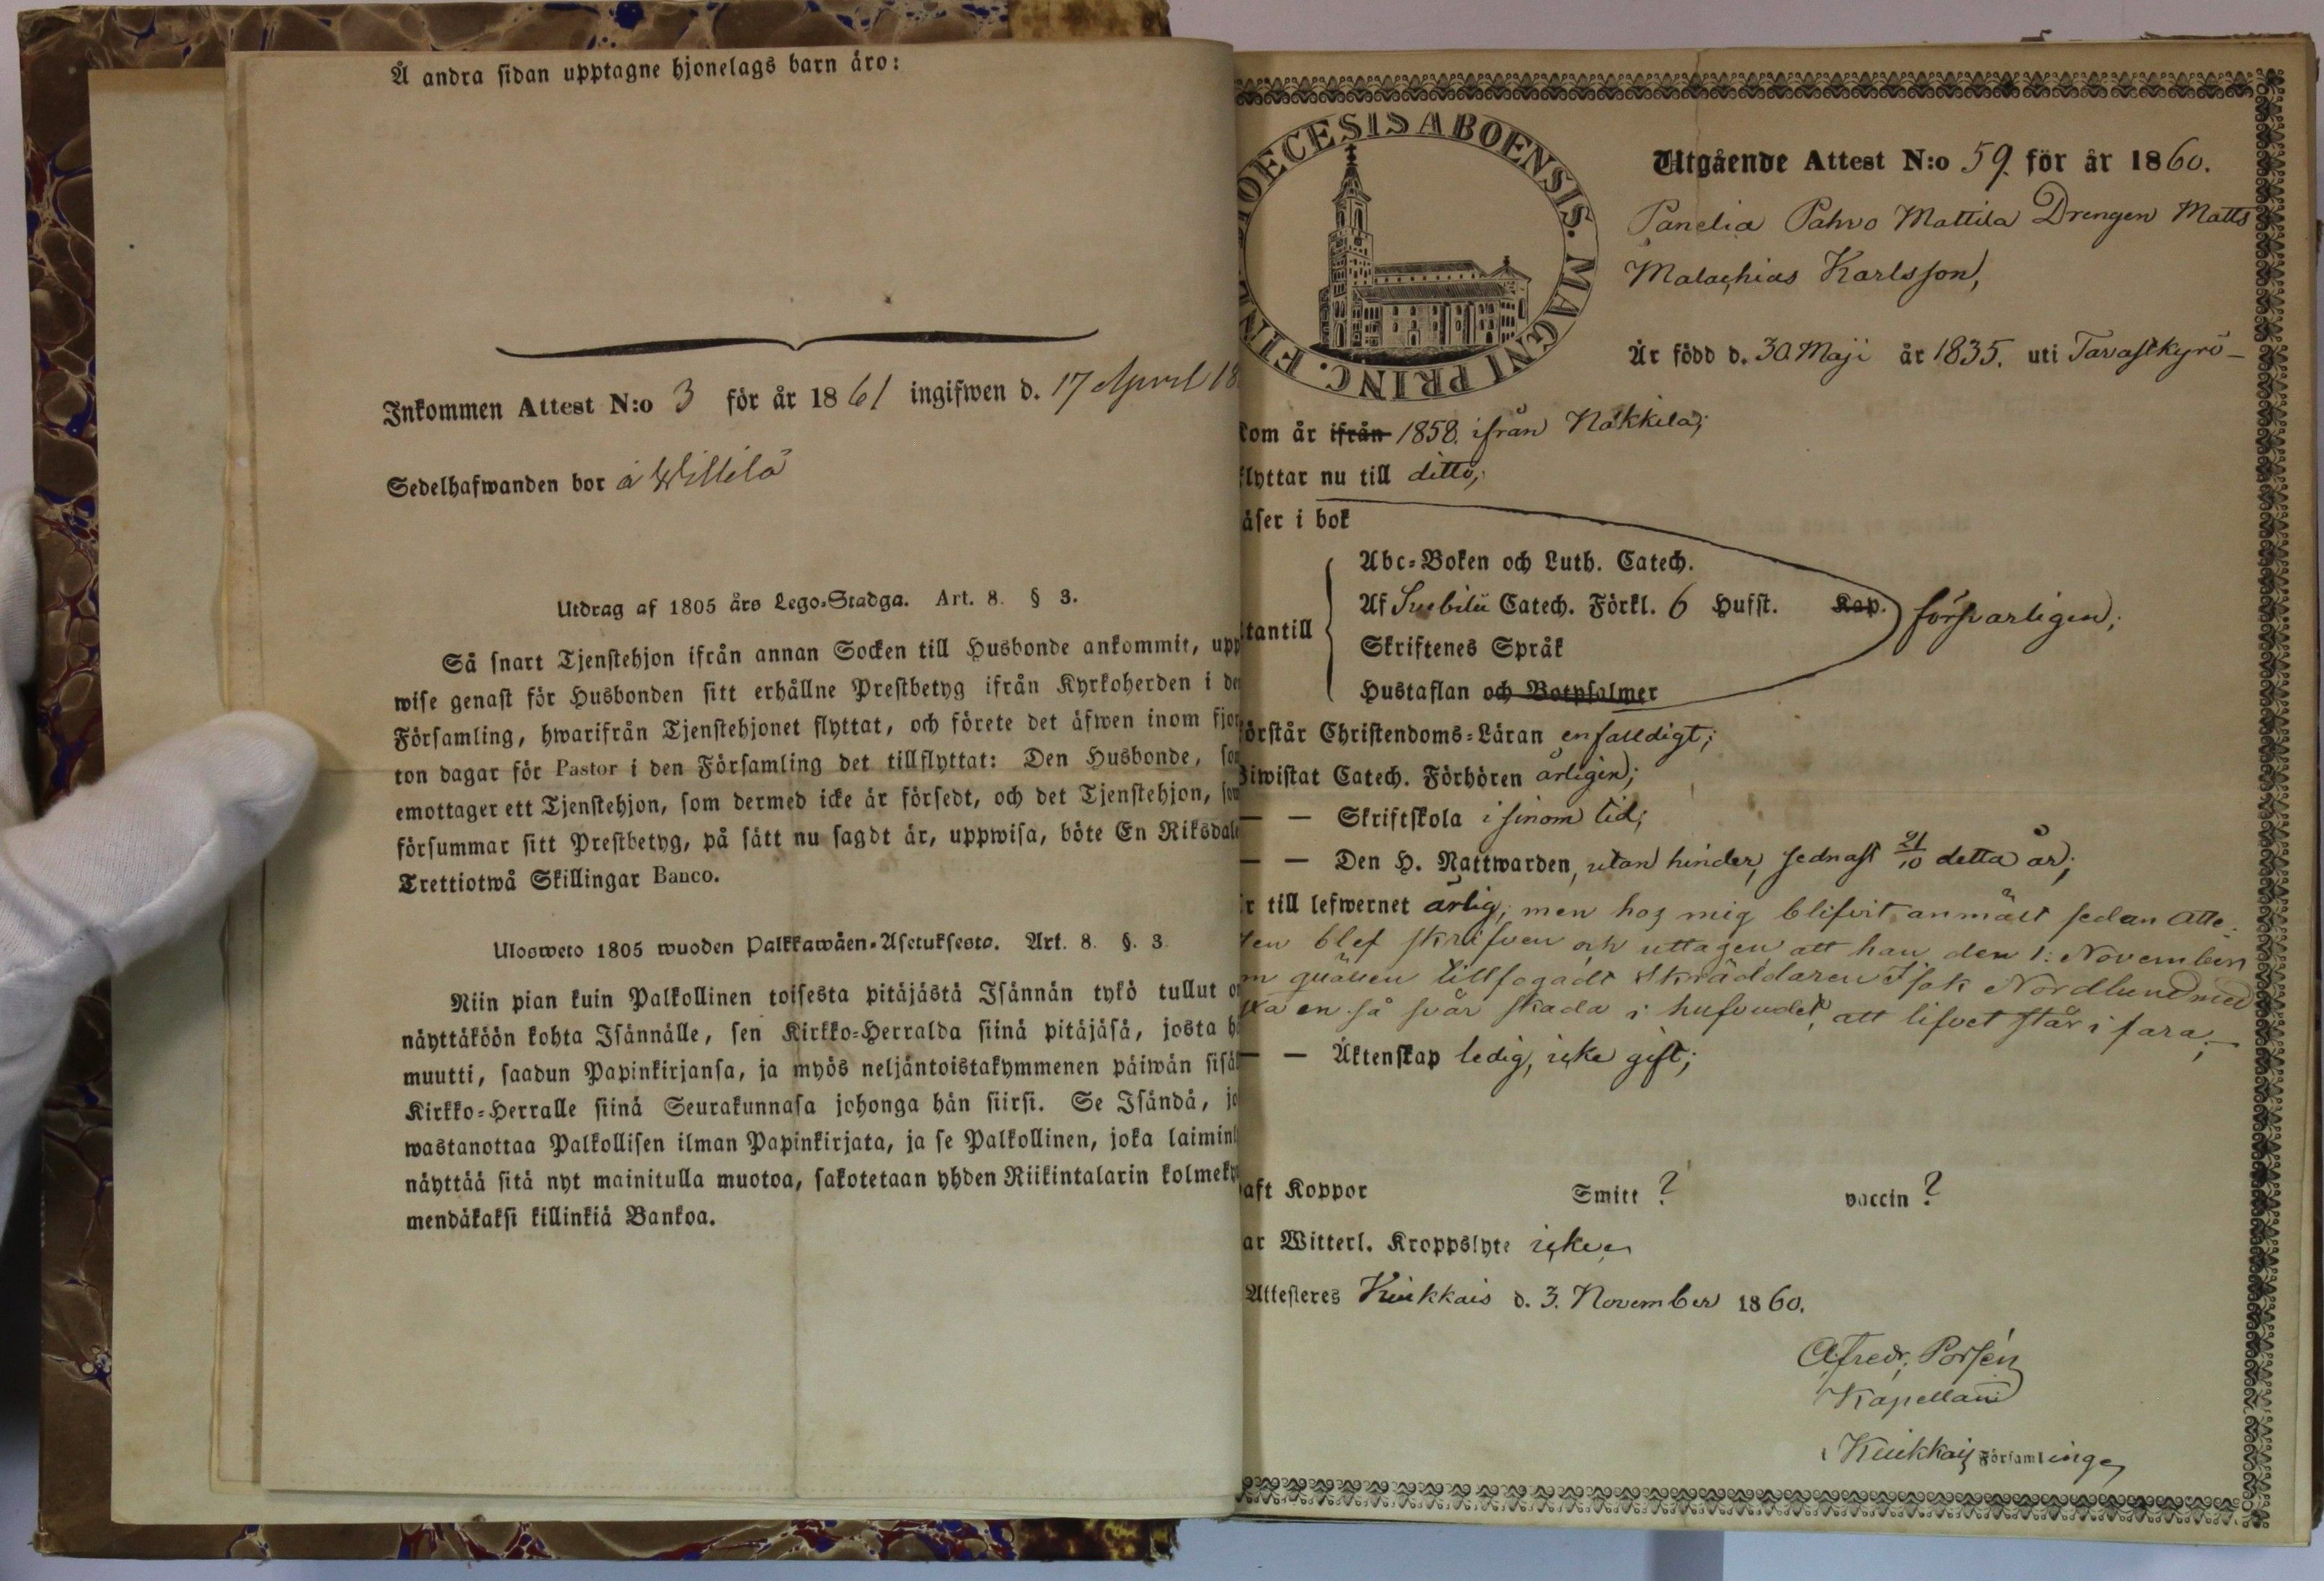 Å andra sidan upptagne hjonelags barn äro:
Inkommen Attest N:o 3 för år 1861 ingifwen d. 17 April 18
Sedelhafwanden bor å Willilä
Utdrag af 1805 års Lego-Stadga. Art. 8. § 3.
Så snart Tjenstehjon ifrån annan Socken till Husbonde ankommit, upp
wise genast för Husbonden sitt erhållne Prestbetyg ifrån Kyrkoherden i de
Församling, hwarifrån Tjenstehjonet flyttat, och förete det äfwen inom fjor
ton dagar för Pastor i den Församling det tillflyttat: Den Husbonde, som
emottager ett Tjenstehjon, som dermed icke är försedt, och det Tjenstehjon, som
försummar sitt Prestbetyg, på sätt nu sagdt är, uppwisa, böte En Riksdale
Trettiotwå Skillingar Banco.
Ulosweto 1805 wuoden Palkkawäen-Asetuksesta. Art. 8. §. 3
Niin pian kuin Palkollinen toisesta pitäjästä Isännän tykö tullut o
näyttäköön kohta Isännälle, sen Kirkko-Herralda siinä pitäjäsä, josta h
muutti, saadun Papinkirjansa, ja myös neljäntoistakymmenen päiwän sisäl
Kirkko-Herralle siinä Seurakunnasa johonga hän siirsi. Se Isändä, jo
wastanottaa Palkollisen ilman Papinkirjata, ja se Palkollinen, joka laiminl
näyttää sitä nyt mainitulla muotoa, sakotetaan yhden Riikintalarin kolmeky
mendäkaksi killinkiä Bankoa.
DIOECESIS ABOENSIS. MAGNI PRINC. FIN
Utgående Attest N:o 59. för år 1860.
Panelia Pahvo Mattila Drengen Matts
Malachias Karlsson,
Är född d. 30. Maji år 1835. uti Tavastkyrö
kom år ifrån 1858. ifrån Nakkila;
flyttar nu till ditto;
äser i bok
Abc-Boken och Luth. Catech.
Af Svebilii Catech. Förkl. 6 Hufst. Kap. försvarligen;
tantill
Skriftenes Språk
Hustaflan och Botpsalmer
örstår Christendoms-Läran enfaldigt;
Biwistat Catech. Förhören årligen;
— — Skriftskola i sinom tid;
— — Den H. Nattwarden, utan hinder, sednast 21/10 detta år;
r till lefwernet ärlig; men hos mig blifvit anmält sedan Atte-
ten blef skrifven och uttagen att han den 1: November
m qvällen tillfogadt skräddaren Isak Nordlund med
ka en så svår skada i hufvudet, att lifvet står i fara;
— — Äktenskap ledig, icke gift;
aft Koppor Smitt ? vaccin ?
ar Witterl. Kroppslyte icke
Attesteres Kiukkais d. 3. November 1860.
Alfredr. Porsén
Kapellan
i Kiukkais Församlinge